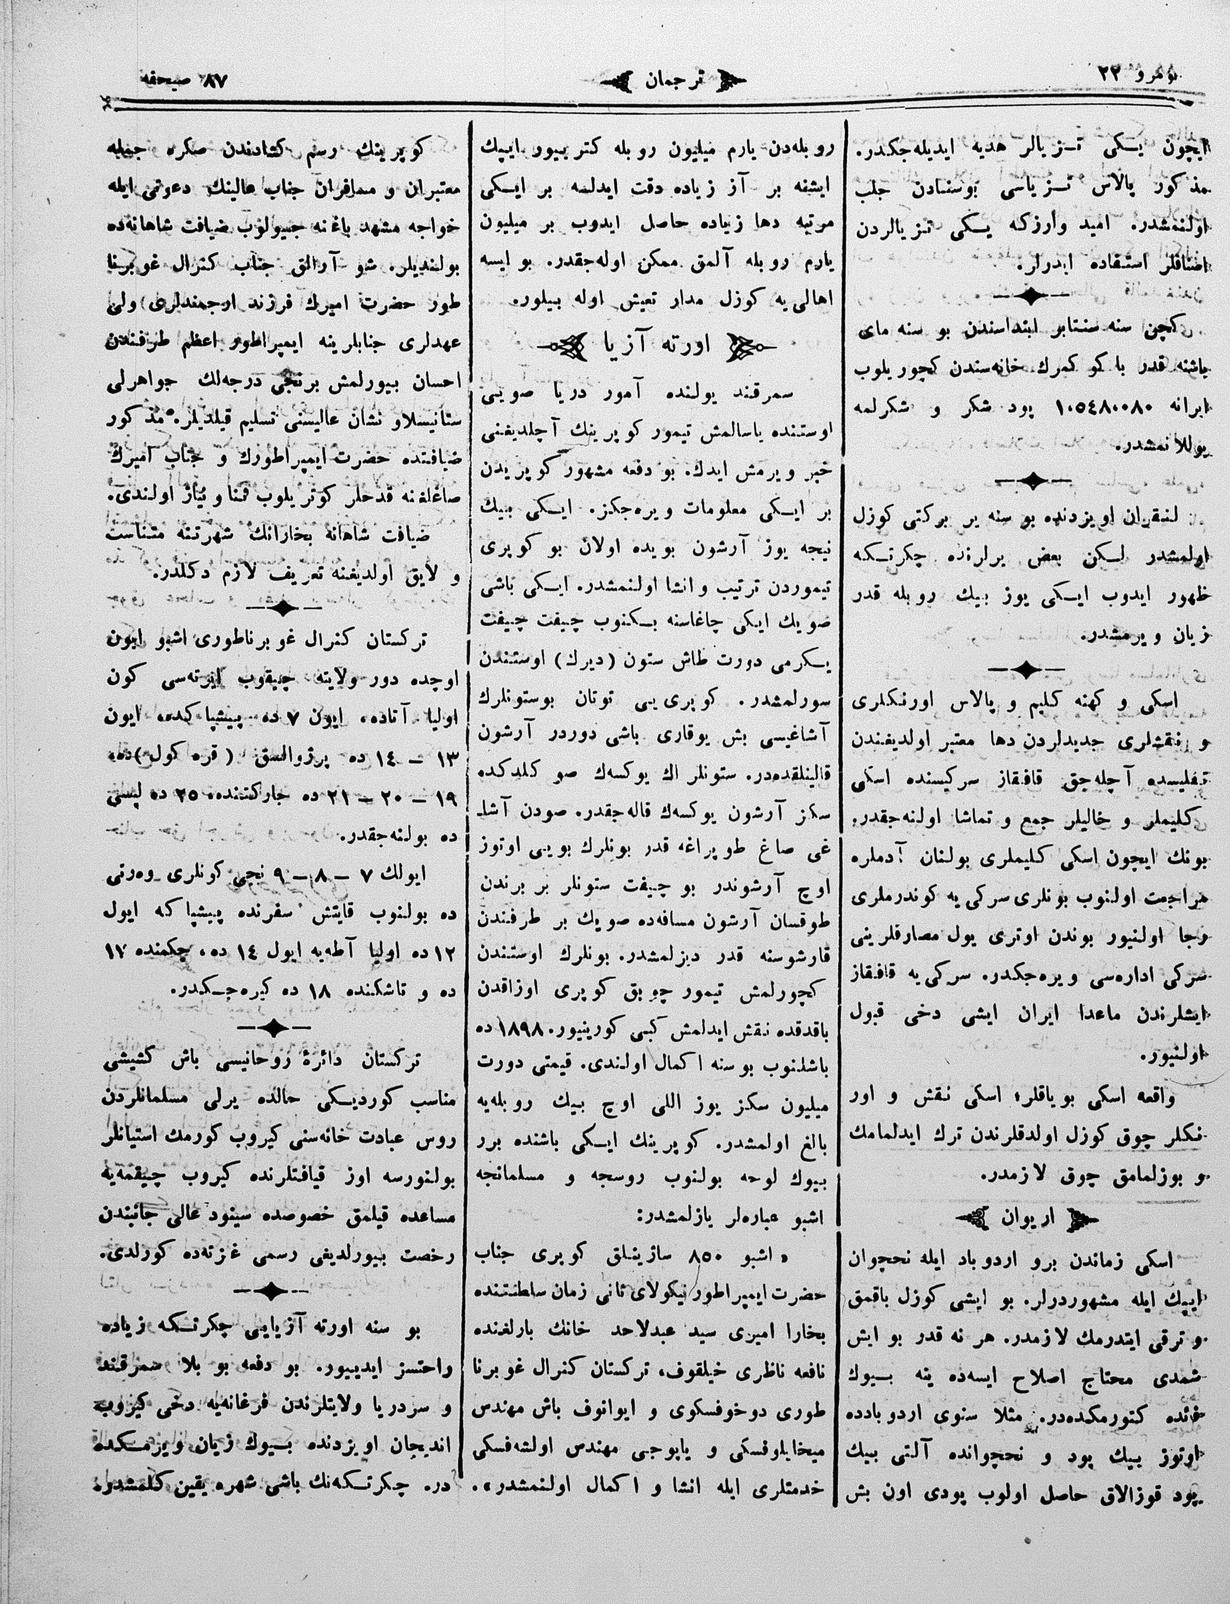 نومرو ٢٢
ترجمان
٨٧ صحيفه
ايچون يكى تزيالر هديه ايديله‌جكدر.
مذكور پالاس تزياسى بوسنادن جلب
اولنمشدر. اميد واررزكه يكى تزيالردن
اصنافلر استفاده ايدرلر.
كچن سنه سنتابر ابتداسندن بو سنه ماى
باشنه قدر باكو كمرك خانه‌سندن كچوريلوب
ايرانه ١٠٥٤٨٠٠٨٠ پود شكر و شكرلمه
يوللانمشدر.
لنقران اويزدنده بو سنه ير بركتى كوزل
اولمشدر ليكن بعض يرلرنده چكرتكه
ظهور ايدوب ايكى يوز بيك روبله قدر
زيان ويرمشدر.
اسكى و كهنه كليم و پالاس اورنكلرى
و نقشلرى جديدلردن دها معتبر اولديغندن
تفليسده آچله‌جق قافقاز سركيسنده اسكى
كليملر و خاليلر جمع و تماشا اولنه‌جقدر.
بونك ايچون اسكى كليملرى بولنان آدملره
مراجعت اولنوب بونلرى سركى‌يه كوندرملرى
رجا اولنيور بوندن اوترى يول مصارفلرينى
سركى اداره‌سى ويره‌جكدر. سركى‌يه قافقاز
ايشلرندن ماعدا ايران ايشى دخى قبول
اولنيور.
واقعه اسكى بوياقلر، اسكى نقش و اور
نكلر چوق كوزل اولدقلرندن ترك ايدلمامك
و بوزلمامق چوق لازمدر.
اريوان
اسكى زماندن برو اردوباد ايله نخچوان
ايپك ايله مشهوردرلر. بو ايشى كوزل باقمق
و ترقى ايتدرمك لازمدر. هر نه قدر بو ايش
شمدى محتاج اصلاح ايسه‌ده ينه بيوك
فائده كتورمكده‌در. مثلا سنوى اردوبادده
اوتوز بيك پود و نخچوانده آلتى بيك
پود قوزالاق حاصل اولوب پودى اون بش
روبله‌دن يارم ميليون روبله كتريبور. ايپك
ايشنه بر آز زياده دقت ايدلمه بر ايكى
مرتبه دها زياده حاصل ايدوب بر ميليون
يارم روبله آلمق ممكن اوله‌جقدر. بو ايسه
اهالى‌يه كوزل مدار تعيش اوله بيلور.
اورته آزيا
سمرقند يولنده آمور دريا صويى
اوستنده ياسالمش تيمور كوپرينك آچلديغنى
خبر ويرمش ايدك. بو دفعه مشهور كوپريدن
بر ايكى معلومات ويره‌جكز. ايكى بيك
نيجه يوز آرشون بويده اولان بو كوپرى
تيموردن ترتيب و انشا اولنمشدر. ايكى باشى
صويك ايكى چاغاسنه بكنوب چيفت چيفت
يكرمى دورت طاش ستون (ديرك) اوستندن
سورلمشدر. كوپرى‌يى توتان بوستونلرك
آشاغيسى بش يوقارى باشى دوردر آرشون
قالينلقده‌در. ستونلر اك يوكسك صو كلدكده
سكز آرشون يوكسك قاله‌جقدر. صودن آشا
غى صاغ طوپراغه قدر بونلرك بويى اوتوز
اوچ آرشوندر بو چيفت ستونلر بر برندن
طوقسان آرشون مسافه‌ده صويك بر طرفندن
قارشوسنه قدر ديزلمشدر. بونلرك اوستندن
كچورلمش تيمور چوبق كوپرى اوزاقدن
باقدقده نقش ايدلمش كبى كورينيور. ١٨٩٨ ده
باشلنوب بو سنه اكمال اولندى. قيمتى دورت
ميليون سكز يوز اللى اوچ بيك روبله‌يه
بالغ اولمشدر. كوپرينك ايكى باشنده برر
بيوك لوحه بولنوب روسجه و مسلمانجه
اشبو عباره‌لر يازلمشدر:
«اشبو ٨٥٠ ساژينلق كوپرى جناب
حضرت ايمپراطور نيكولاى ثانى زمان سلطنتنده
بخارا اميرى سيد عبدلاحد خانك بارلغنده
نافعه ناظرى خيلقوف، تركستان كنرال غوبرنا
طورى دوخوفسكوى و ايوانوف باش مهندس
ميخايلوفسكى و ياپوجى مهندس اولشه‌فسكى
خدمتلرى ايله انشا و اكمال اولنمشدر».
كوپرينك رسم كشادندن صكره جمله
معتبران و مسافران جناب عالينك دعوتى ايله
خواجه مشهد باغنه جيولوب ضيافت شاهانه‌ده
بولنديلر. شو آرالق جناب كنرال غوبرنا
طور حضرت اميرك فرزند ارجمندلرى ولى
عهدلرى جنابلرينه ايمپراطور اعظم طرفندن
احسان بيورلمش برنجى درجه‌لك جواهرلى
ستانيسلاو نشان عاليسنى تسليم قيلديلر. مذكور
ضيافتده حضرت ايمپراطورك و جناب اميرك
صاغلغنه قدحلر كوتريلوب ثنا و نياز اولندى.
ضيافت شاهانه بخارانك شهرتنه متناسب
و لايق اولديغنه تعريف لازم دكلدر.
تركستان كنرال غوبرناطورى اشبو ايون
اوچده دور ولايته چيقوب ايرته‌سى كون
اوليا آتاده، ايون ٧ ده پيشپاكده، ايون
١٣ – ١٤ ده پرژوالسق (قره كول) ده،
١٩ – ٢٠ – ٢١ ده جاركنتده، ٢٥ ده لپسى
ده بولنه‌جقدر.
ايولك ٧ – ٨ – ٩ نجى كونلرى وه‌رنى
ده بولنوب قايتش سفرنده پيشپاكه ايول
١٢ ده اوليا آطه‌يه ايول ١٤ ده، چمكنده ١٧
ده و تاشكنده ١٨ ده كيره‌جكدر.
تركستان دائرهٔ روحانيسى باش كشيشى
مناسب كورديكى حالده يرلى مسلمانلردن
روس عبادت خانه‌سنى كيروب كورمك استيانلر
بولنورسه اوز قيافتلرنده كيروب چيقمه‌يه
مساعده قيلمق خصوصده سينود عالى جانبندن
رخصت بيورلديغى رسمى غزته‌ده كورلدى.
بو سنه اورته آزيايى چكرتكه زياده
راحتسز ايدييور. بو دفعه بو بلا سمرقند
و سردريا ولايتلرندن فرغانه‌يه دخى كيروب
انديجان اويزدنده بيوك زيان ويرمكده
در. چكرتكه‌نك باشى شهره يقين كلمشدر.